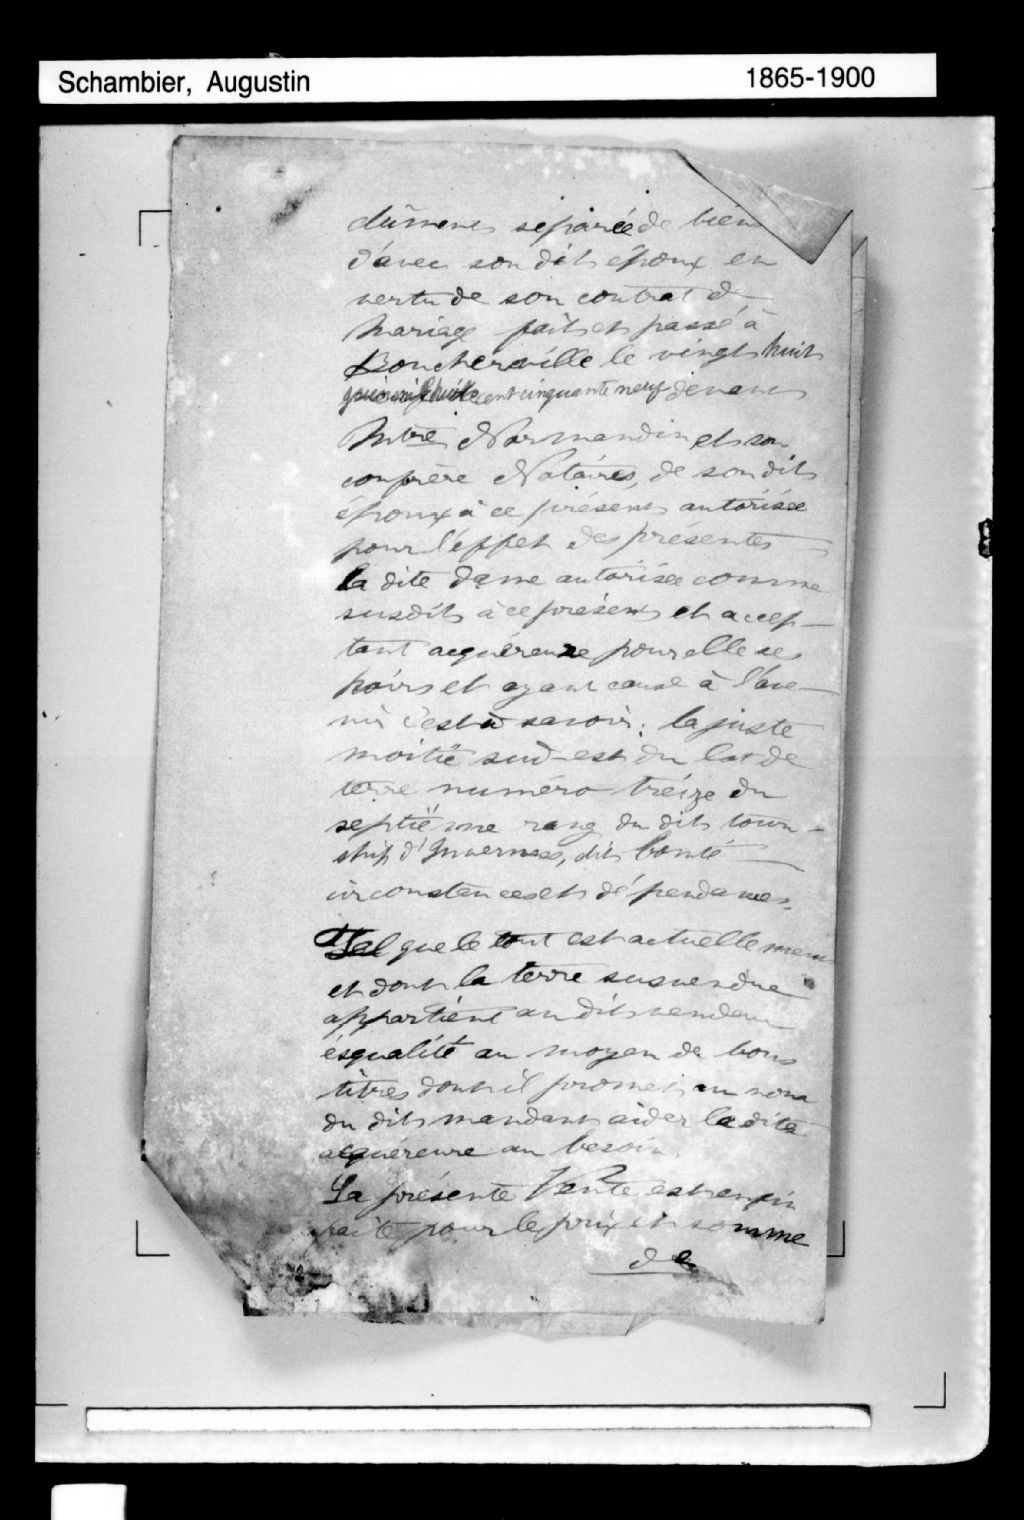 Schambier, Augustin 1865-1900
dûment séparée de biens
d'avec son dit époux en
vertu de son contrat de
Mariage fait et passé à
Boucherville le vingt huit
huit cent cinquante neuf devant
Mtre Normandin et son
confrère Notaires, de son dit
époux à ce présent autorisée
pour l'effet des présentes
la dite dame autorisée comme
susdit à ce présent et accep-
tant acquéreuse pour elle ses
hoirs et ayant cause à l'ave-
nir c'est à savoir: la juste
moitié sud-est du lot de
terre numéro treize du
septième rang du dit town-
ship d'Inverness, dit comté
circonstances et dépendances.
Tel que le tout est actuellement
et dont la terre susvendue
appartient au dit vendeur
ésqualité au moyen de bons
titres dont il promet au nom
du dit mandant aider la dite
acquéreure au besoin.
La présente Vente est enfin
faite pour le prix et somme
de